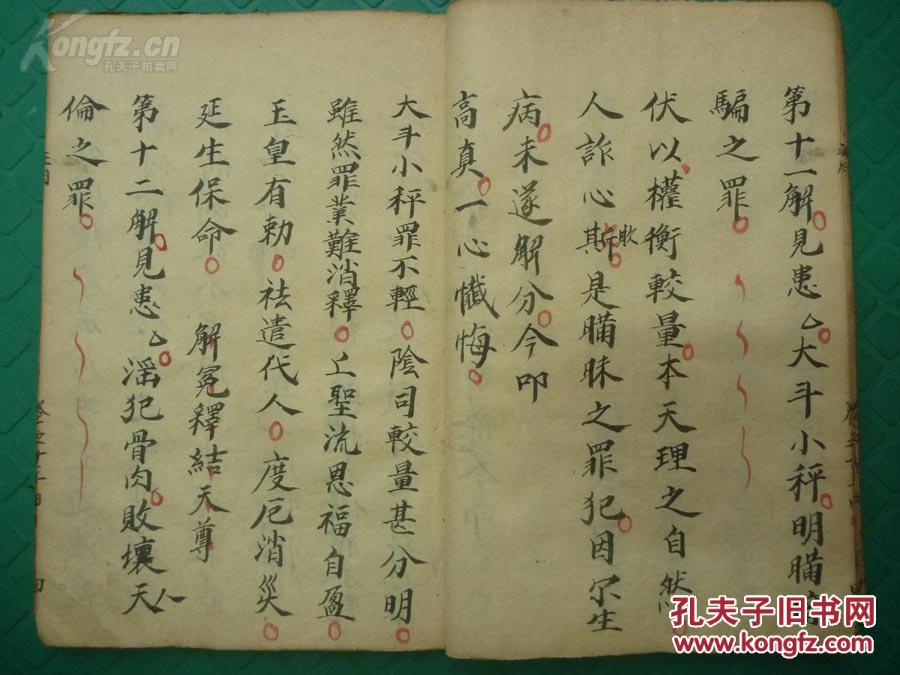 第十一解見患厶大斗小秤明瞞
騙之罪
伏以權衡較量本天理之自然
人詐心斯敗是瞞昧之罪犯因尔生
病未遂解分今叩
高真一心懺悔
大斗小秤罪不輕陰司較量甚分明
雖然罪業難消釋上聖流恩福自盈
玉皇有勅祛遣代人度厄消災
延生保命 解冤釋結天尊
第十二解見患厶滛犯骨肉敗壞天人
倫之罪
Kongfz.cn
孔夫子拍卖网
孔夫子旧书网
www.kongfz.com